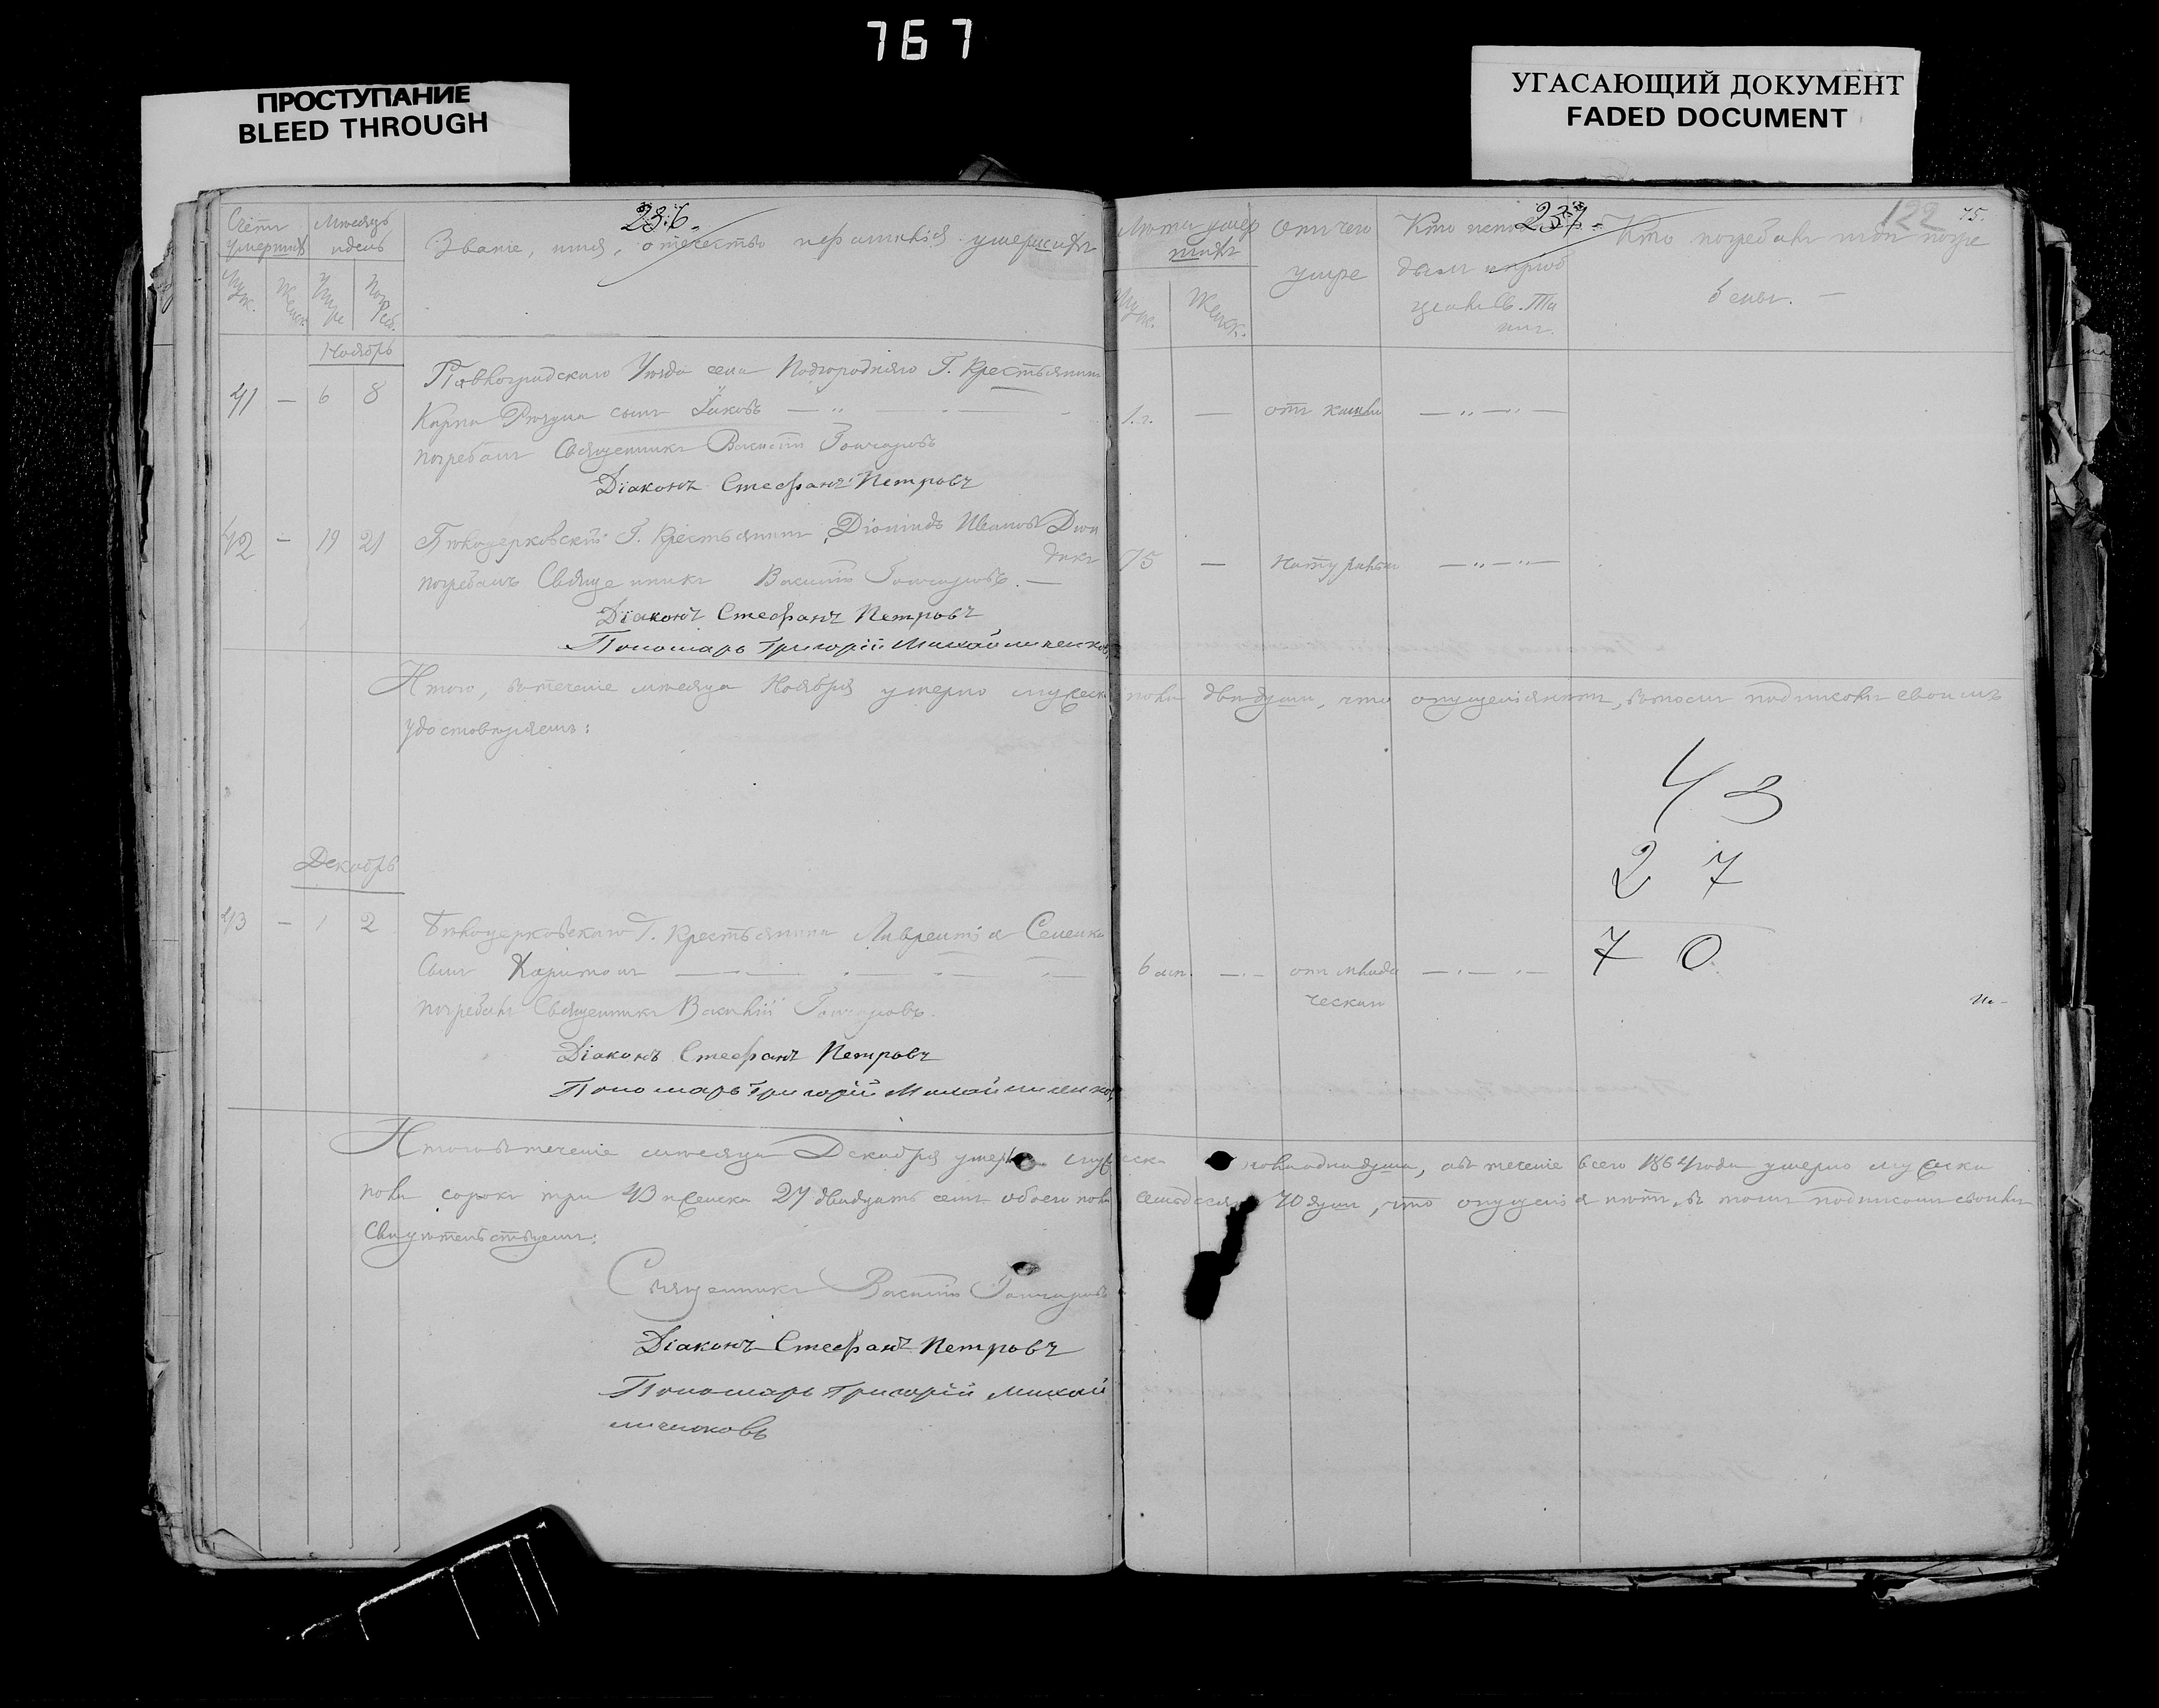 767
ПРОСТУПАНИЕ
BLEED THROUGH
УГАСАЮЩИЙ ДОКУМЕНТ
FADED DOCUMENT
236.
237
122
75.
Счетъ умершихъ
Мѣсяцъ и день
Званіе, имя, отчество и фамилія умершихъ
Лѣта умершихъ
Отъ чего умре
Кто исповѣдалъ
Кто погребалъ и гдѣ погребены. —
Муж.
Женск.
Умре
Погреб.
Муж.
Женск.
Ноябрь
41 — 6 8
Павлоградскаго Уѣзда села Подгородняго Г. Крестьянина
Карпа сынъ Іаковъ
1 г. —
погребалъ Священникъ Василій Гончаровъ
Діаконъ Стефанъ Петровъ
42 — 19 21
Бѣлоцерковскій Г. Крестьянинъ Діонидъ Ивановъ
75 — Натурально
погребалъ Священникъ Василій Гончаровъ. —
Діаконъ Стефанъ Петровъ
Пономарь Григорій Михайличенковъ
Итого, въ теченіе мѣсяца Ноября умерло мужеска пола двѣ души, что опущенія нѣтъ, въ томъ подписомъ своимъ
удостовѣряемъ:
43
27
70
Декабрь
43 — 1 2
Бѣлоцерковскаго Г. Крестьянина Лаврентія Семенка
сынъ Харитонъ
6 дн. — отъ младенческой
погребалъ Священникъ Василій Гончаровъ.
Діаконъ Стефанъ Петровъ
Пономарь Григорій Михайличенковъ
Итого въ теченіе мѣсяца Декабря умерла мужеска пола одна душа, а въ теченіе всего 1864 года умерло мужеска
пола сорокъ три 43 и женска 27 двадцать семь обоего пола семьдесятъ 70 душъ, что опущенія нѣтъ, въ томъ подписомъ своимъ
свидѣтельствуемъ:
Священникъ Василій Гончаровъ
Діаконъ Стефанъ Петровъ
Пономарь Григорій Михай
личенковъ